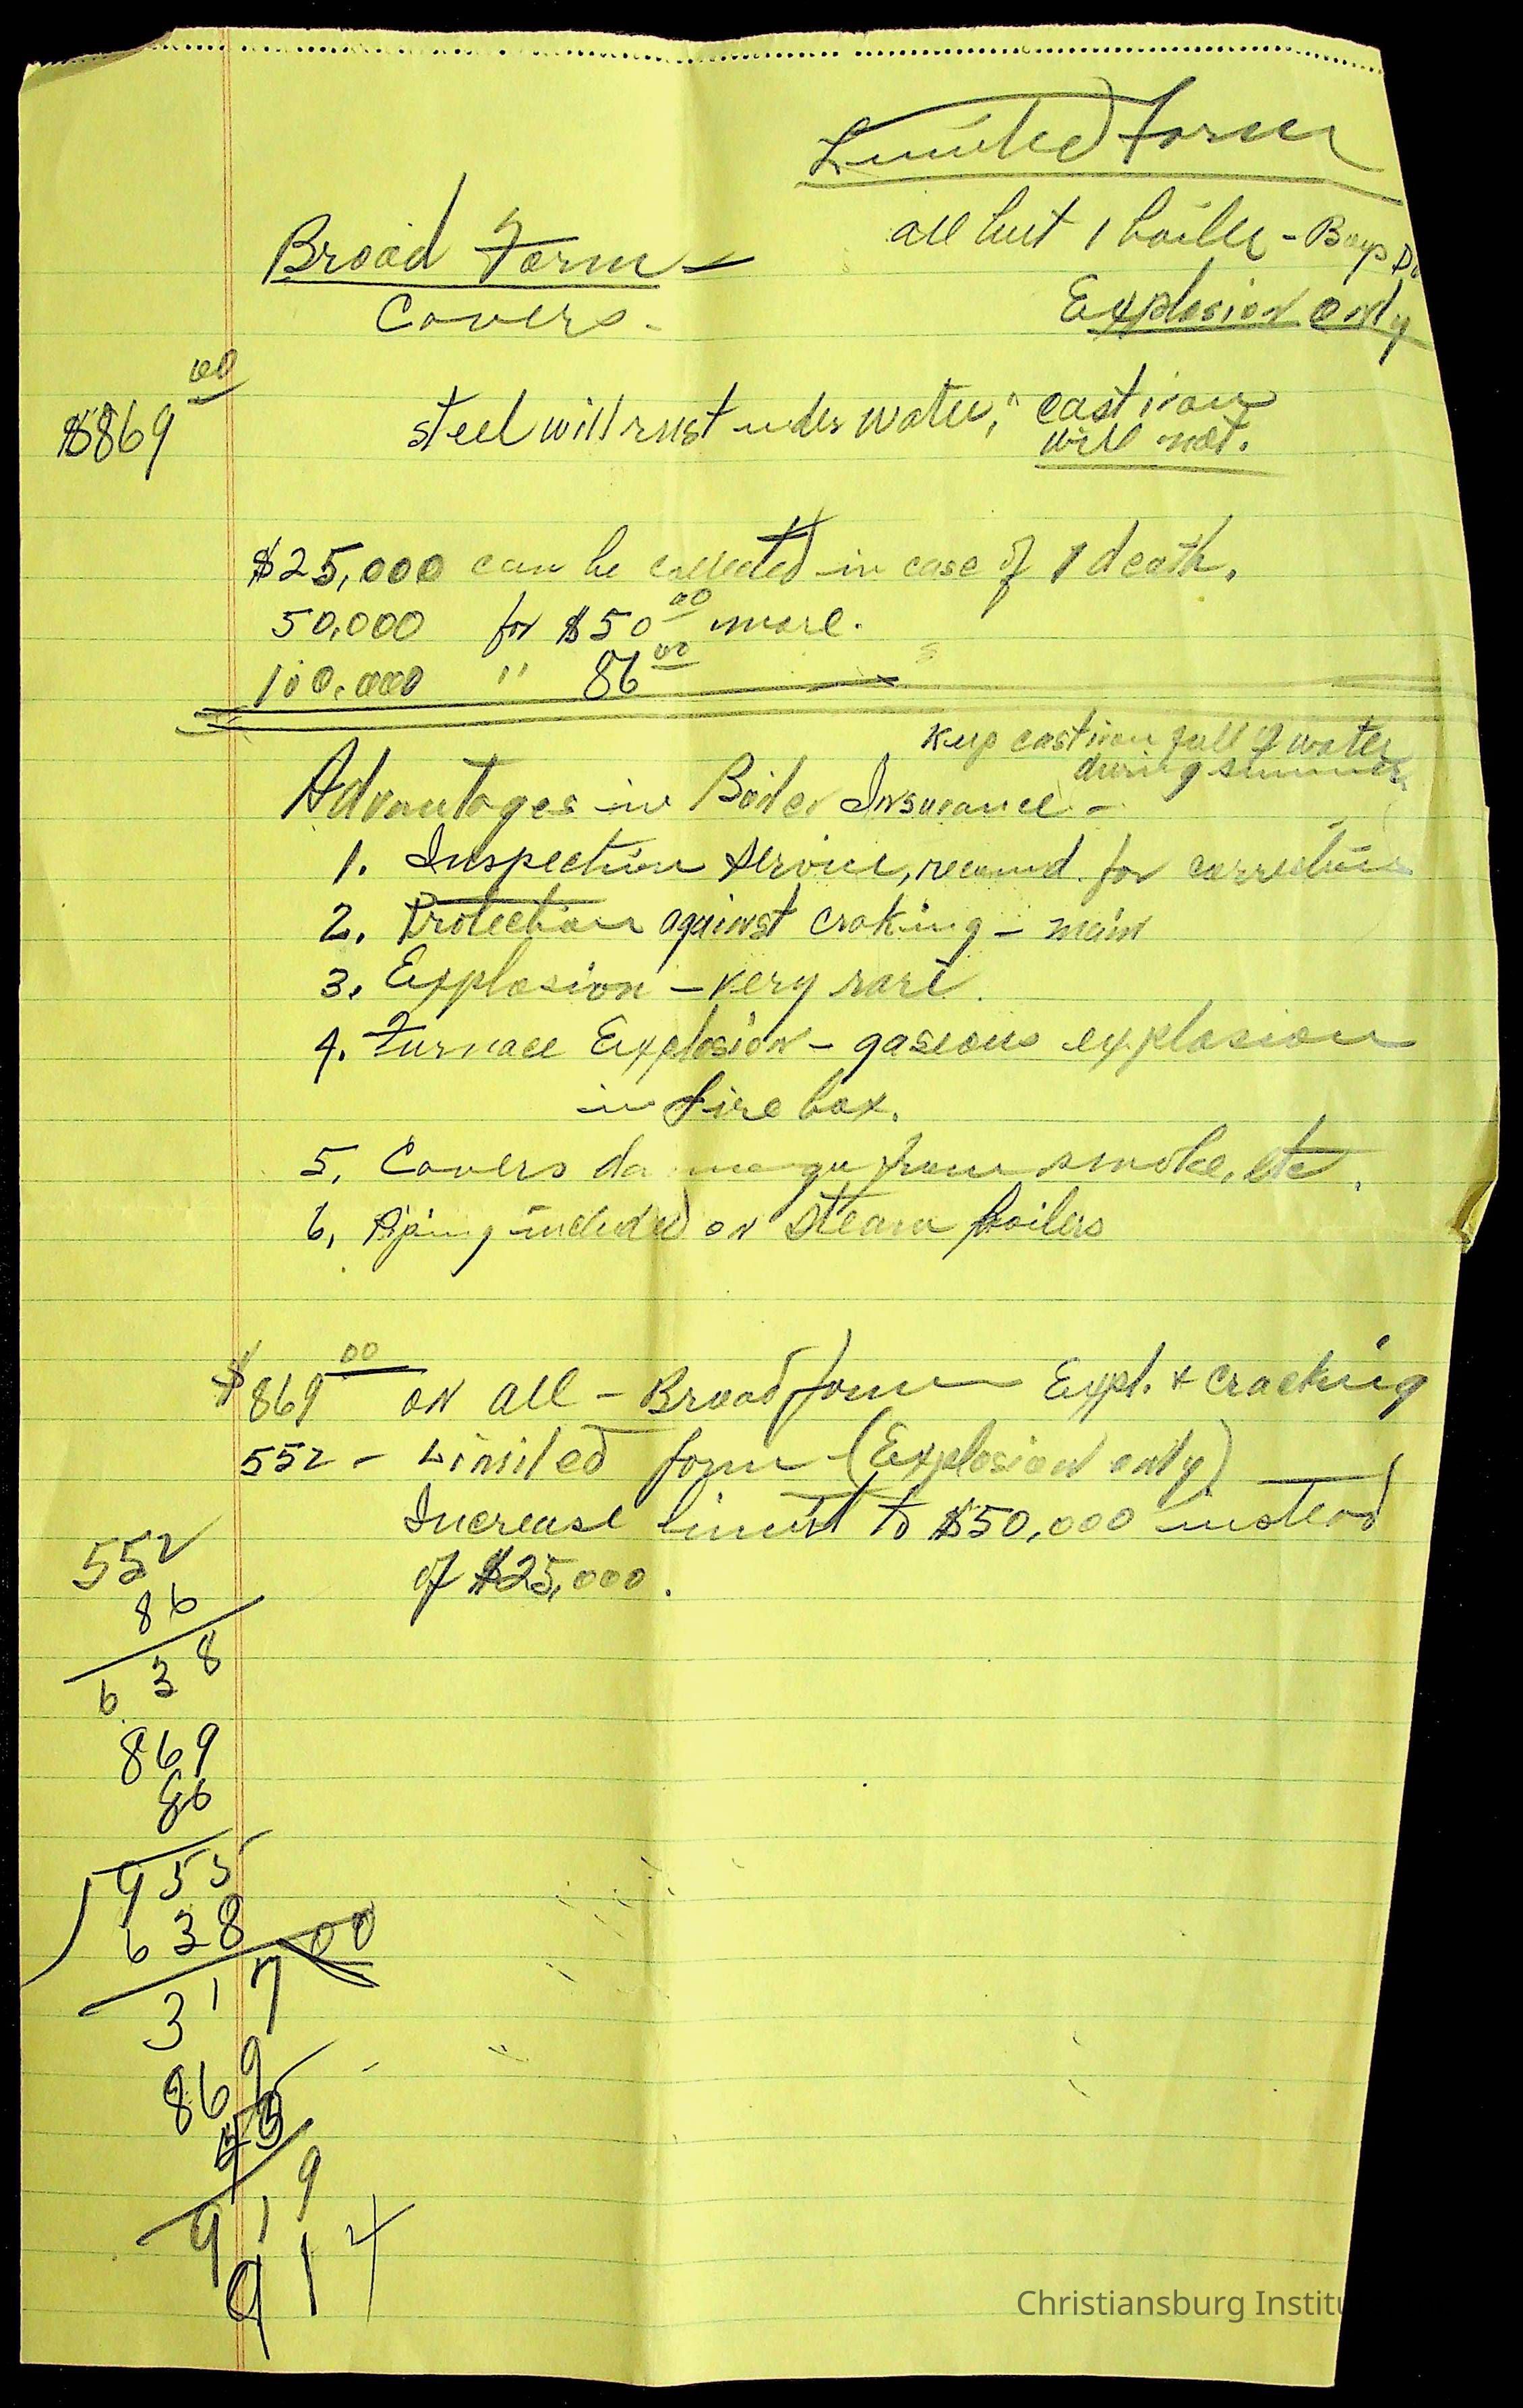 Limited Form
all but 1 boiler - Boys
Explosion only
Broad Form -
Covers.
$869 00
steel will rust under water; cast iron
will not.
$25,000 can be collected in case of 1 death.
50,000 for $50 00 more.
100,000 " 86 00
Keep cast iron full of water
during summer
Advantages in Boiler Insurance -
1. Inspection Service, recomd. for correction
2. Protection against craking - main
3. Explosion - very rare.
4. Furnace Explosion - gaseous explosion
in fire box.
5. Covers damage from smoke, etc.
6. Piping included on steam boilers
$869 00 on all - Broad form Expl. & cracking
552 - Limited form (Explosion only)
Increase limit to $50,000 instead
of $25,000.
552
86
638
869
86
955
638
317 00
869
919
914
Christiansburg Institu